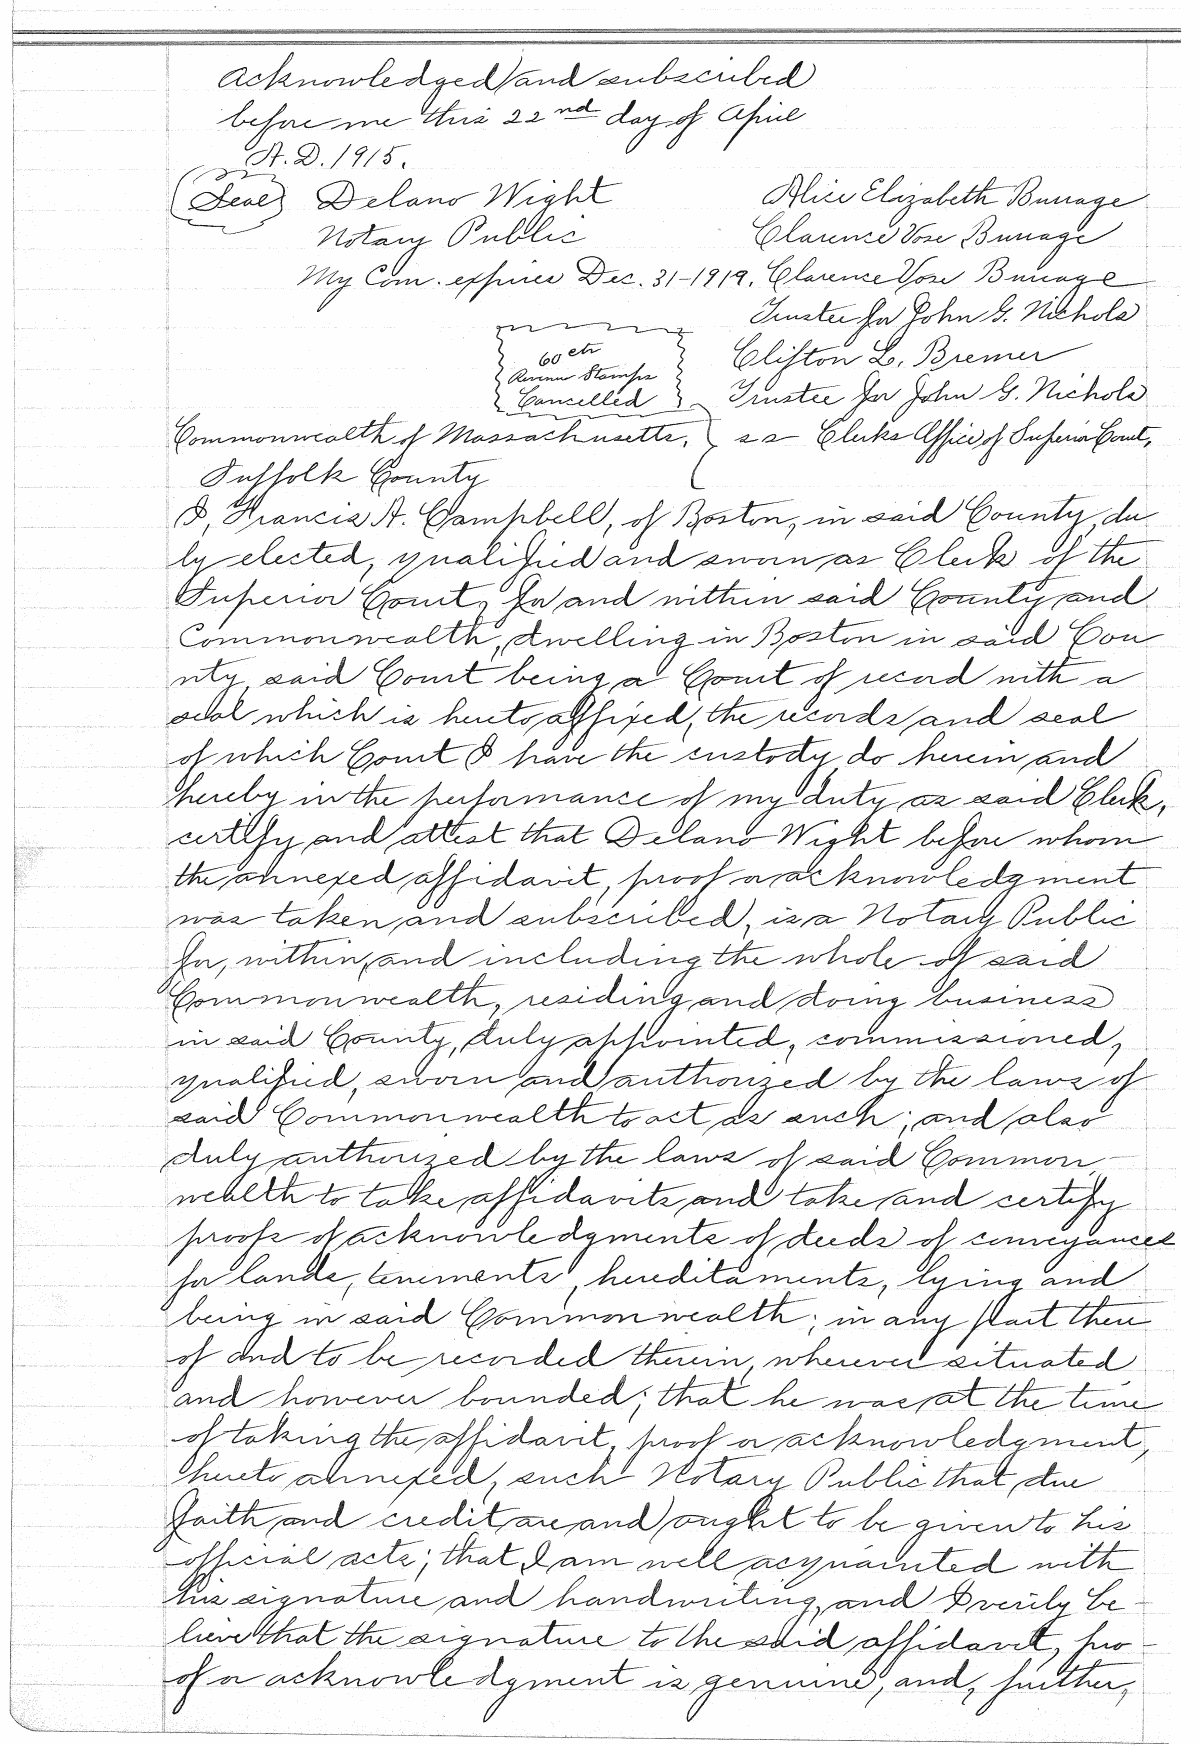 Acknowledged and subscribed
before me this 22nd day of April
A.D. 1915.
(Seal) Delano Wight Alice Elizabeth Burrage
Notary Public Clarence Vose Burrage
My Com. expires Dec. 31-1919. Clarence Vose Burrage
Trustee for John G. Nichols
60 cts Clifton L. Bremer
Revenue Stamps
Cancelled Trustee for John G. Nichols
Commonwealth of Massachusetts, } ss Clerks Office of Superior Court,
Suffolk County
I, Francis A. Campbell, of Boston, in said County, du
ly elected, qualified and sworn as Clerk of the
Superior Court, for and within said County and
Commonwealth, dwelling in Boston in said Cou
nty, said Court being a Court of record with a
seal which is hereto affixed, the records and seal
of which Court I have the custody, do herein and
hereby in the performance of my duty as said Clerk,
certify and attest that Delano Wight before whom
the annexed affidavit, proof or acknowledgment
was taken and subscribed, is a Notary Public
for, within, and including the whole of said
Commonwealth, residing and doing business
in said County, duly appointed, commissioned,
qualified, sworn and authorized by the laws of
said Commonwealth to act as such; and also
duly authorized by the laws of said Common-
wealth to take affidavits and take and certify
proofs of acknowledgments of deeds of conveyances
for lands, tenements, hereditaments, lying and
being in said Commonwealth; in any part there
of and to be recorded therein, wherever situated
and however bounded; that he was at the time
of taking the affidavit, proof or acknowledgment,
hereto annexed, such Notary Public that due
faith and credit are and ought to be given to his
official acts; that I am well acquainted with
his signature and handwriting, and I verily be-
lieve that the signature to the said affidavit, pro-
of or acknowledgment is genuine, and, further,